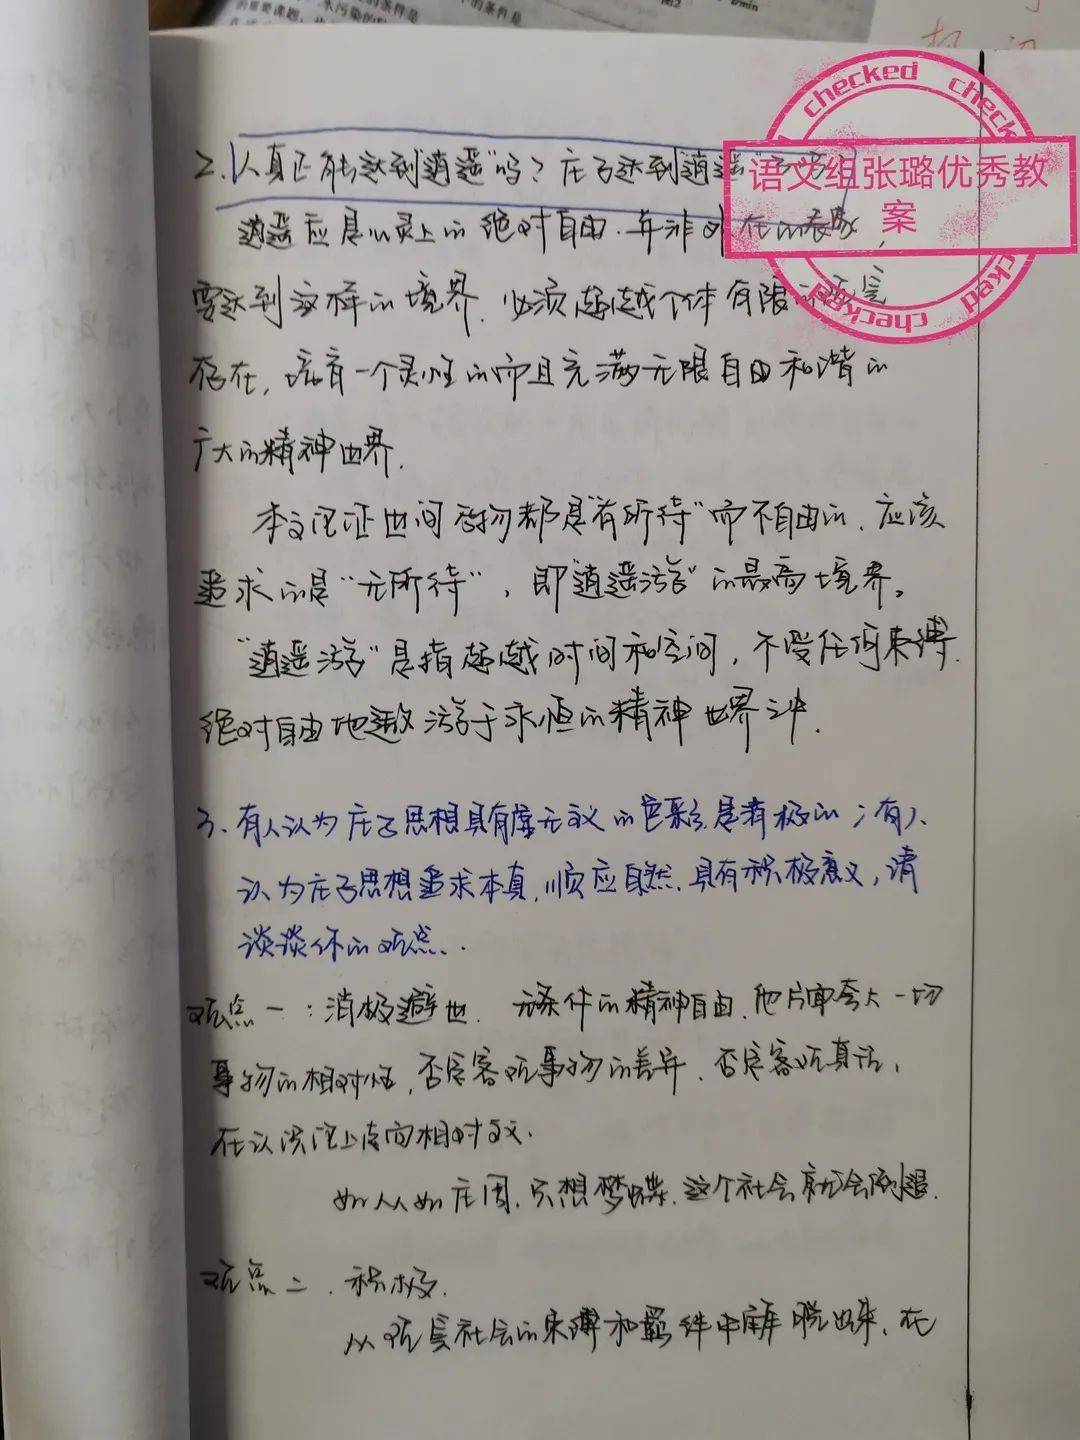 的条件是
的条件是
的重要课题
水污染的
2. 人真正能达到逍遥"吗？庄子达到逍遥"了吗
逍遥应是心灵上的绝对自由，并非外在的表象，
要达到这样的境界，必须超越个体有限的
存在，流有一个灵性的而且充满无限自由和谐的
广大的精神世界.
本文论证世间万物都是"有所待"而不自由的，应该
追求的是"无所待"，即"逍遥游"的最高境界。
"逍遥游"是指超越时间和空间，不受任何束缚.
绝对自由地遨游于永恒的精神世界之中.
3. 有人认为庄子思想具有虚无主义的色彩，是消极的；有人
认为庄子思想追求本真，顺应自然，具有积极意义，请
谈谈你的观点.
观点一：消极避世. 无条件的精神自由，他片面夸大一切
事物的相对性，否定客观事物的差异，否定客观真理，
在认识论上走向相对主义.
如人人如庄周，只想梦蝶，这个社会就会倒退.
观点二. 积极.
从现实社会的束缚和羁绊中解脱出来，在
checked checked
语文组张璐优秀教
案
checked checked